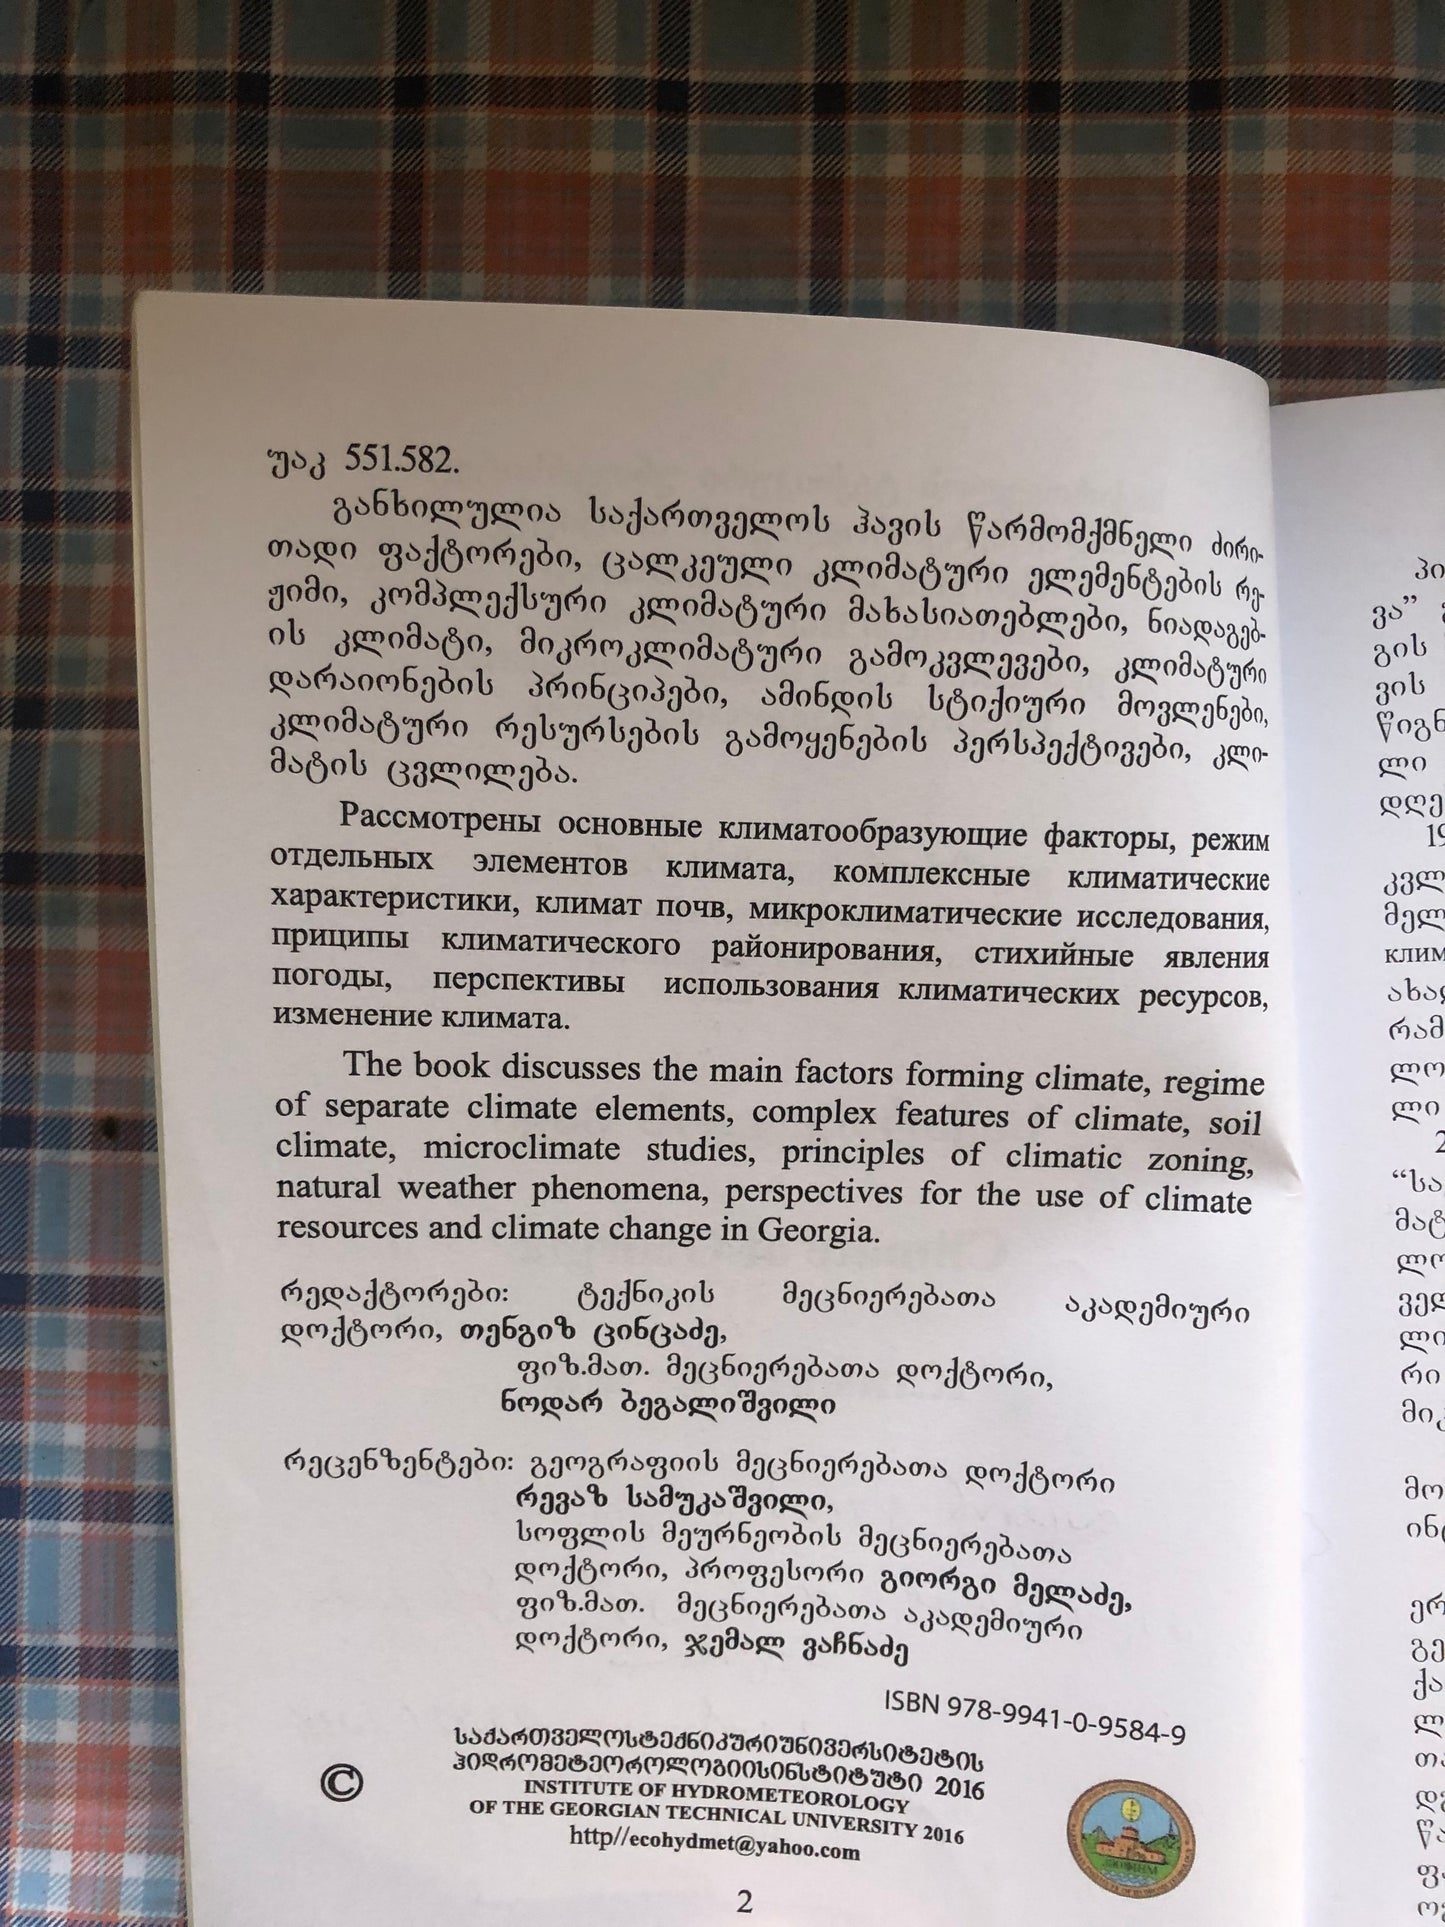 უაკ 551.582.
განხილულია საქართველოს ჰავის წარმომქმნელი ძირი-
თადი ფაქტორები, ცალკეული კლიმატური ელემენტების რე-
ჟიმი, კომპლექსური კლიმატური მახასიათებლები, ნიადაგებ-
ის კლიმატი, მიკროკლიმატური გამოკვლევები, კლიმატური
დარაიონების პრინციპები, ამინდის სტიქიური მოვლენები,
კლიმატური რესურსების გამოყენების პერსპექტივები, კლი-
მატის ცვლილება.
Рассмотрены основные климатообразующие факторы, режим
отдельных элементов климата, комплексные климатические
характеристики, климат почв, микроклиматические исследования,
приципы климатического районирования, стихийные явления
погоды, перспективы использования климатических ресурсов,
изменение климата.
The book discusses the main factors forming climate, regime
of separate climate elements, complex features of climate, soil
climate, microclimate studies, principles of climatic zoning,
natural weather phenomena, perspectives for the use of climate
resources and climate change in Georgia.
რედაქტორები: ტექნიკის მეცნიერებათა აკადემიური
დოქტორი, თენგიზ ცინცაძე,
ფიზ.მათ. მეცნიერებათა დოქტორი,
ნოდარ ბეგალიშვილი
რეცენზენტები: გეოგრაფიის მეცნიერებათა დოქტორი
რევაზ სამუკაშვილი,
სოფლის მეურნეობის მეცნიერებათა
დოქტორი, პროფესორი გიორგი მელაძე,
ფიზ.მათ. მეცნიერებათა აკადემიური
დოქტორი, ჯემალ ვაჩნაძე
ISBN 978-9941-0-9584-9
საქართველოსტექნიკურიუნივერსიტეტის
ჰიდრომეტეოროლოგიისინსტიტუტი 2016
©
INSTITUTE OF HYDROMETEOROLOGY
OF THE GEORGIAN TECHNICAL UNIVERSITY 2016
http//ecohydmet@yahoo.com
2
ვა”
გის
ვის
ლი
19
ლი
2
რი